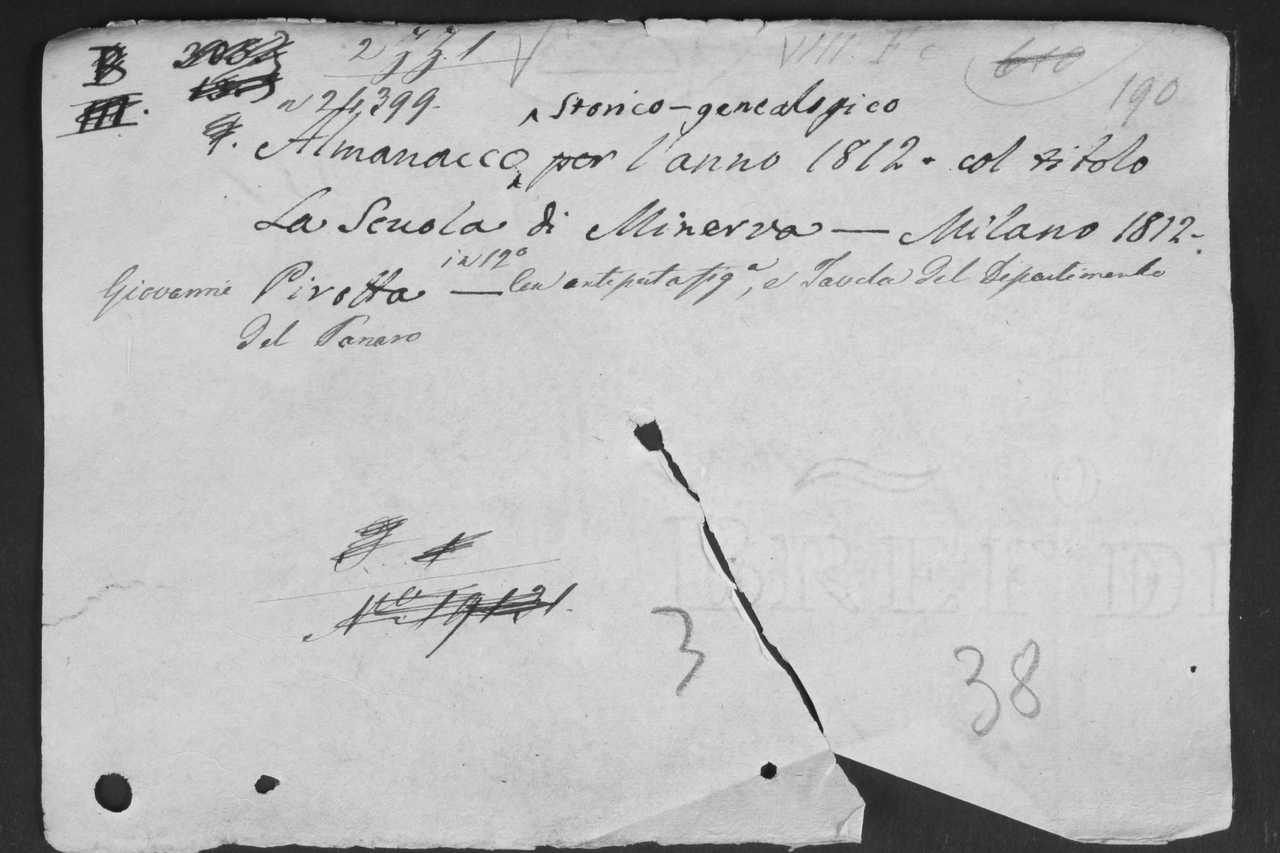 B
III.
2 Jj. 1
VIII. F c
610
190
n 24,399.
storico-genealogico
q. Almanacco per l'anno 1812. col titolo
La Scuola di Minerva — Milano 1812.
in 12°
Giovanni Pirotta — Con antiporta fig.ª, e Tavola del Dipartimento
del Panaro
N.º 19131.
3
38